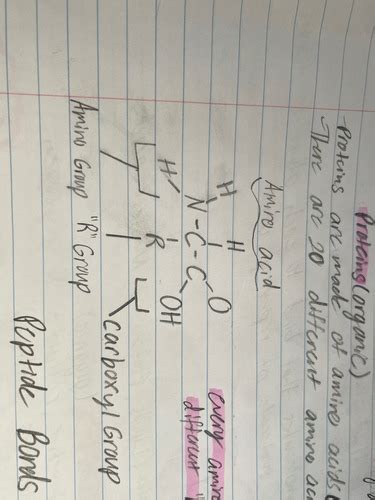 Proteins (organic)
-Proteins are made of amino acids
-There are 20 different amino
Amino acid
H H O
N-C-C
H R OH
Amino Group "R" Group Carboxyl Group
every
different
Peptide Bonds